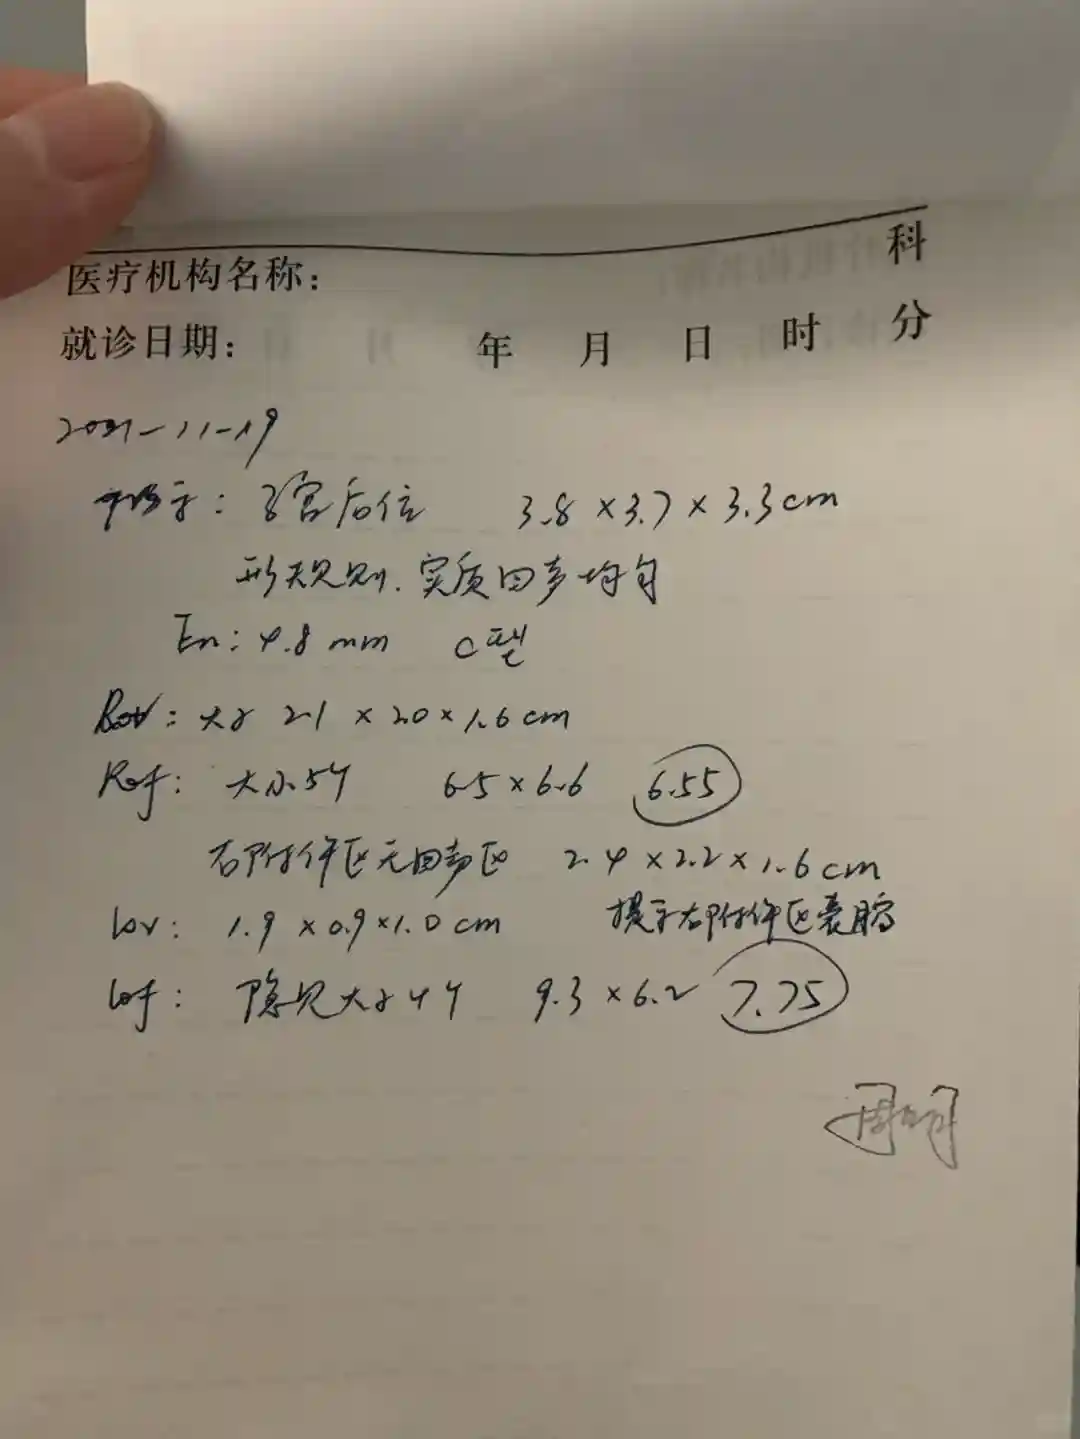 科
医疗机构名称：
就诊日期： 年 月 日 时 分
2021-11-19
: 子宫后位 3.8×3.7×3.3cm
形规则.实质回声均匀
En: 4.8mm C型
Rov: 大小 2.1×2.0×1.6cm
Rof: 大小5个 6.5×6.6 6.55
右附件区无回声区 2.4×2.2×1.6cm
lov: 1.9×0.9×1.0cm 提示右附件区囊肿
lof: 隐见大小4个 9.3×6.2 7.75